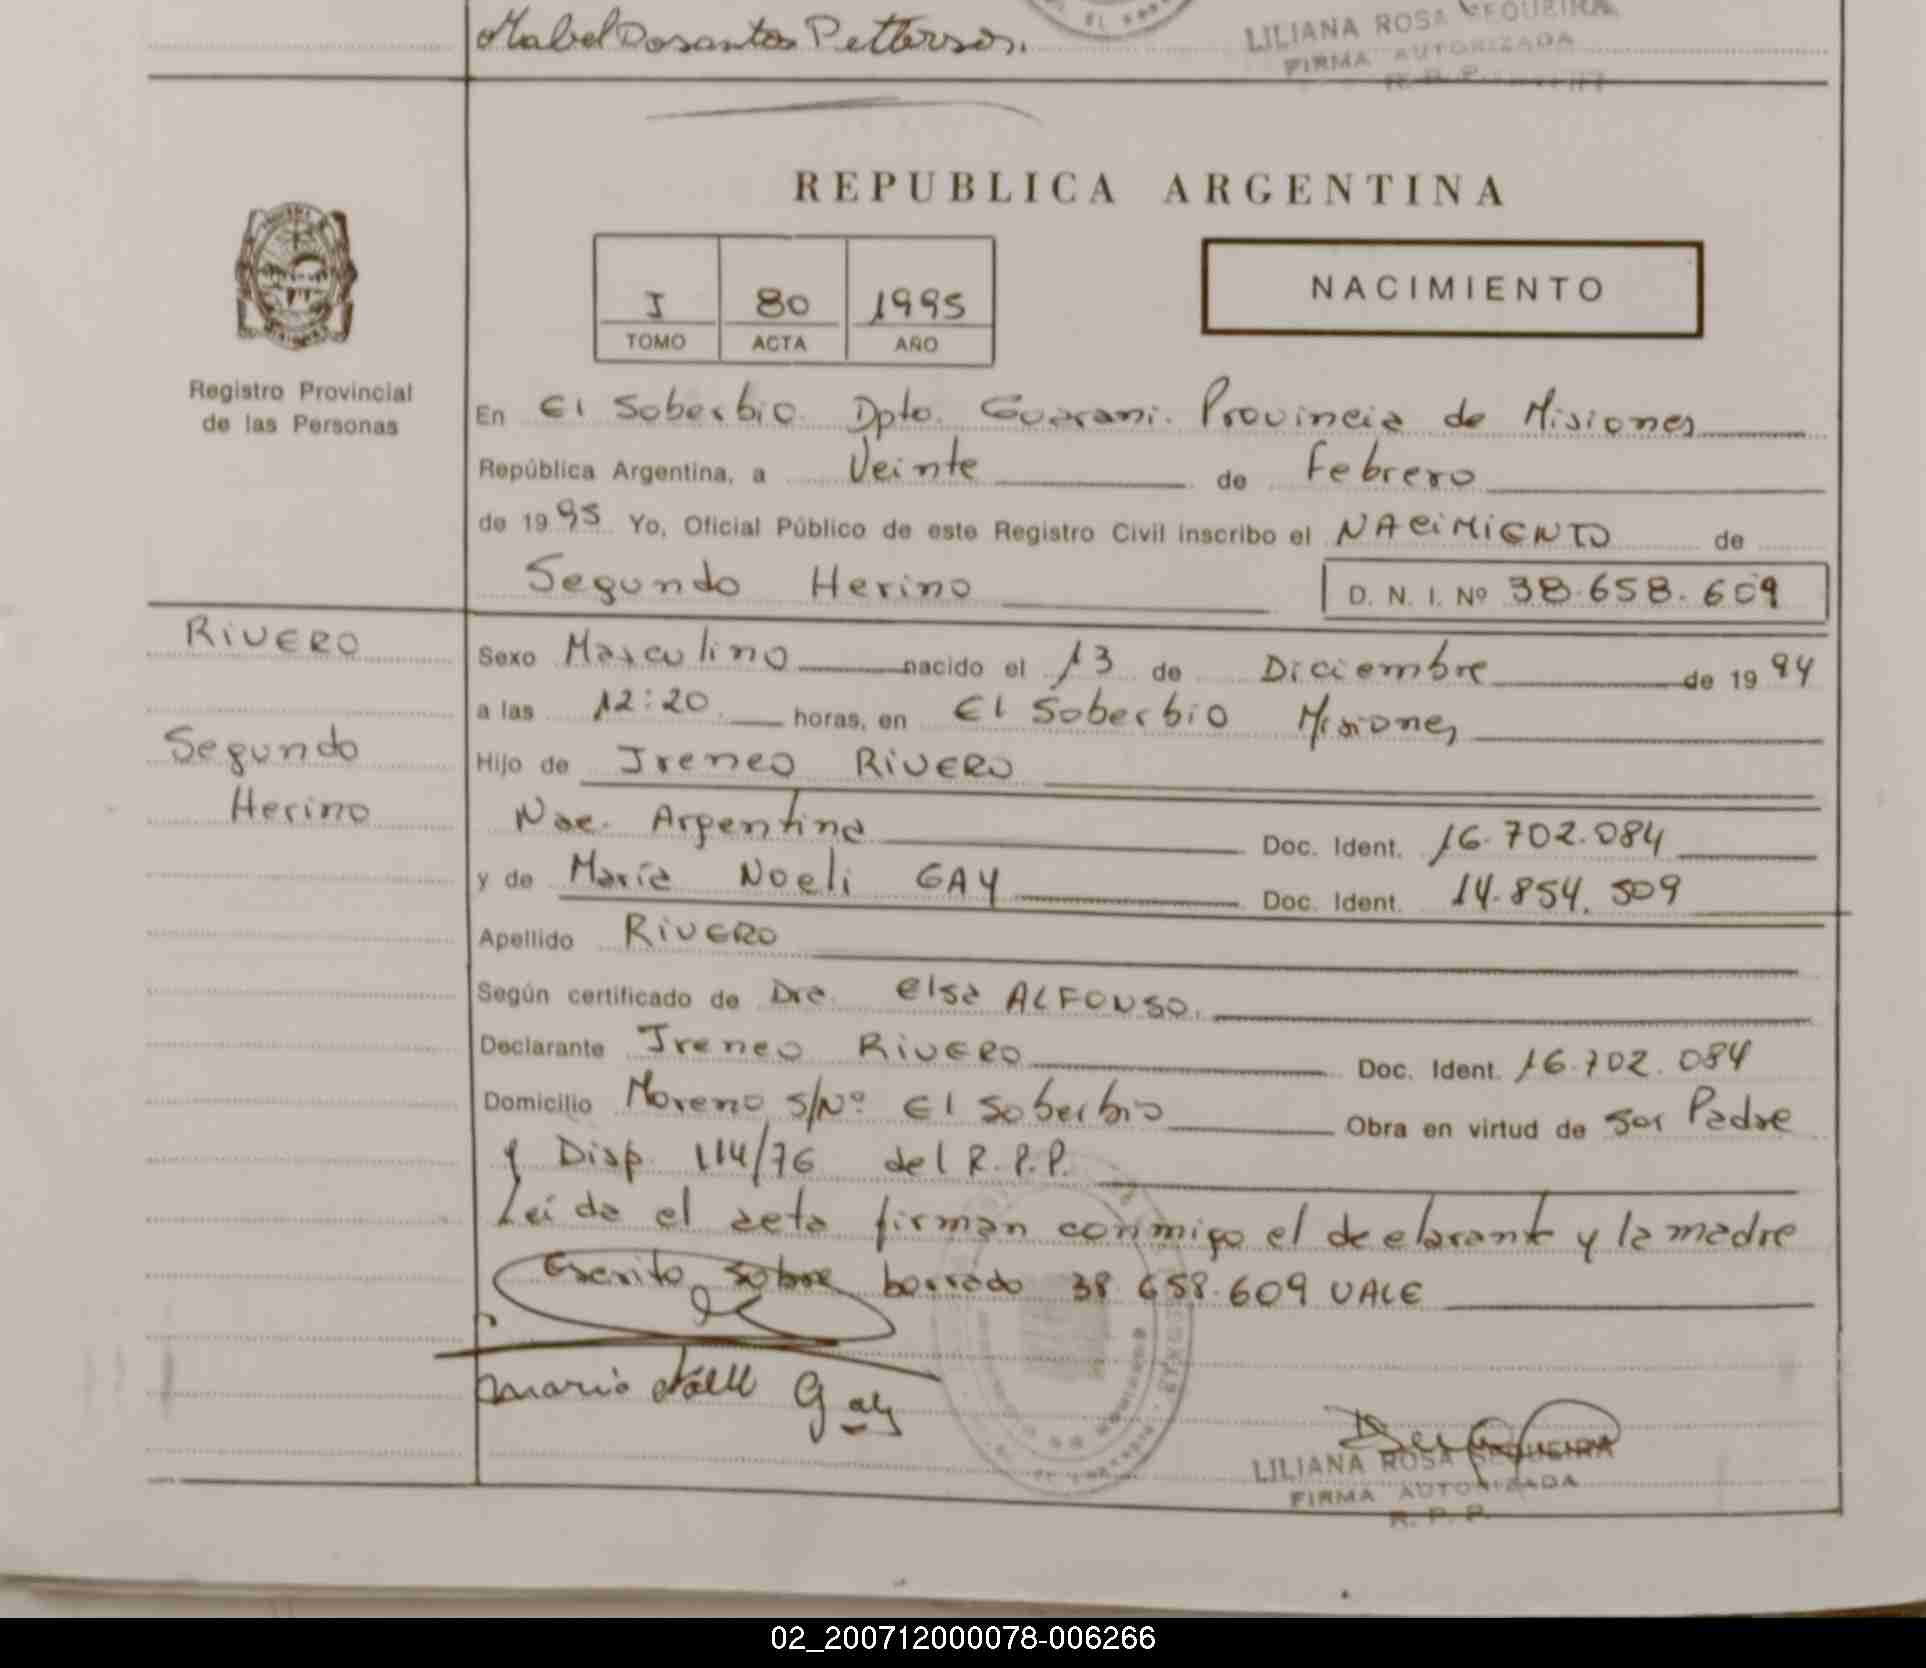 Mabel Dosantos Petterson.
LILIANA ROSA SEQUEIRA
FIRMA AUTORIZADA
R. P. P.
REPUBLICA ARGENTINA
I 80 1995
TOMO ACTA AÑO
NACIMIENTO
Registro Provincial
de las Personas
En El Soberbio. Dpto. Guarani. Provincia de Misiones
República Argentina, a Veinte de Febrero
de 1995 Yo, Oficial Público de este Registro Civil inscribo el NACIMIENTO de
Segundo Herino D. N. I. Nº 38.658.609
RIVERO
Segundo
Herino
Sexo Masculino nacido el 13 de Diciembre de 1994
a las 12:20 horas, en El Soberbio Misiones
Hijo de Ireneo RIVERO
Nac. Argentina Doc. Ident. 16.702.084
y de María Noeli GAY Doc. Ident. 14.854.509
Apellido RIVERO
Según certificado de Dra. Elsa ALFONSO.
Declarante Ireneo RIVERO Doc. Ident. 16.702.084
Domicilio Moreno S/Nº El Soberbio Obra en virtud de ser Padre
y Disp. 114/76 del R.P.P.
Leída el acta firman conmigo el declarante y la madre
Escrito sobre borrado 38.658.609 VALE
Gay
LILIANA ROSA SEQUEIRA
FIRMA AUTORIZADA
R. P. P.
02_200712000078-006266